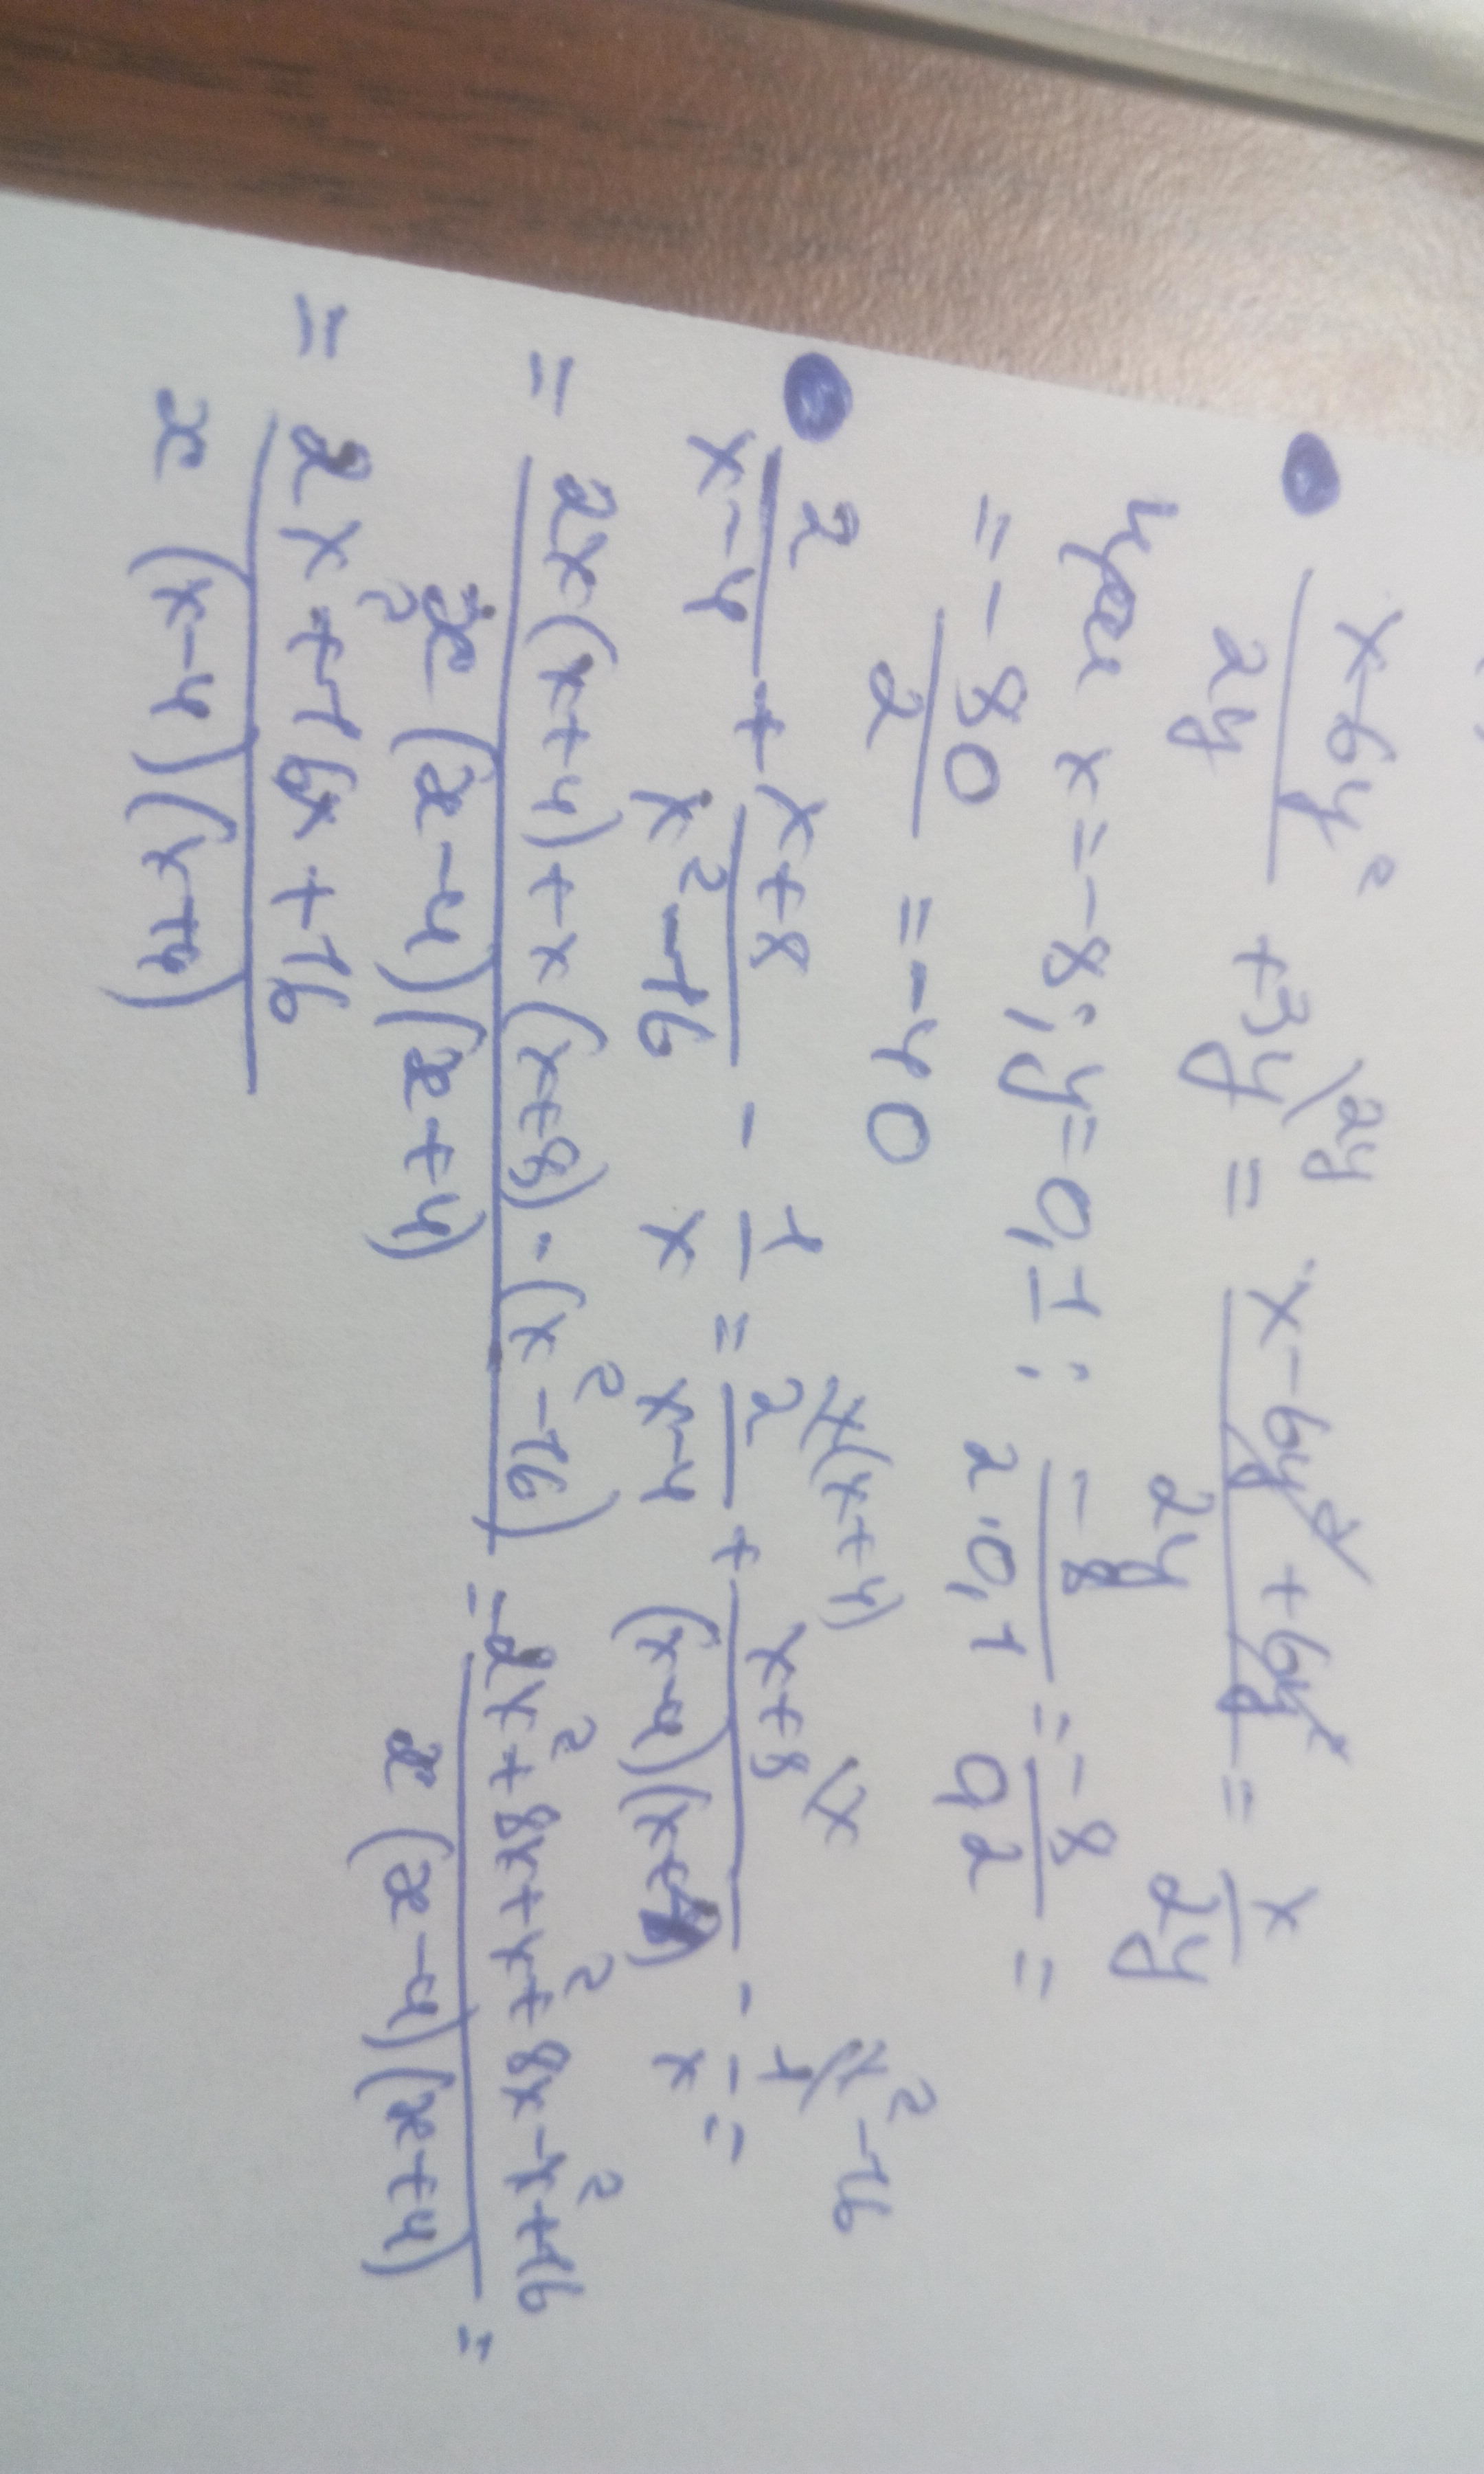 • (x-6y²)/(2y) + 3y^(/2y) = (x-6y²+6y²)/(2y) = x/(2y)
при x=-8; y=0,1: -8/(2·0,1) = -8/0,2 =
= -80/2 = -40
• 2/(x-4) + (x+8)/(x²-16) - 1/x = 2/(x-4)^(/x(x+4)) + (x+8)/((x-4)(x+4))^(/x) - 1/x^(/x²-16) =
= (2x(x+4)+x(x+8)-(x²-16))/(x(x-4)(x+4)) = (2x²+8x+x²+8x-x²+16)/(x(x-4)(x+4)) =
= (2x²+16x+16)/(x(x-4)(x+4))